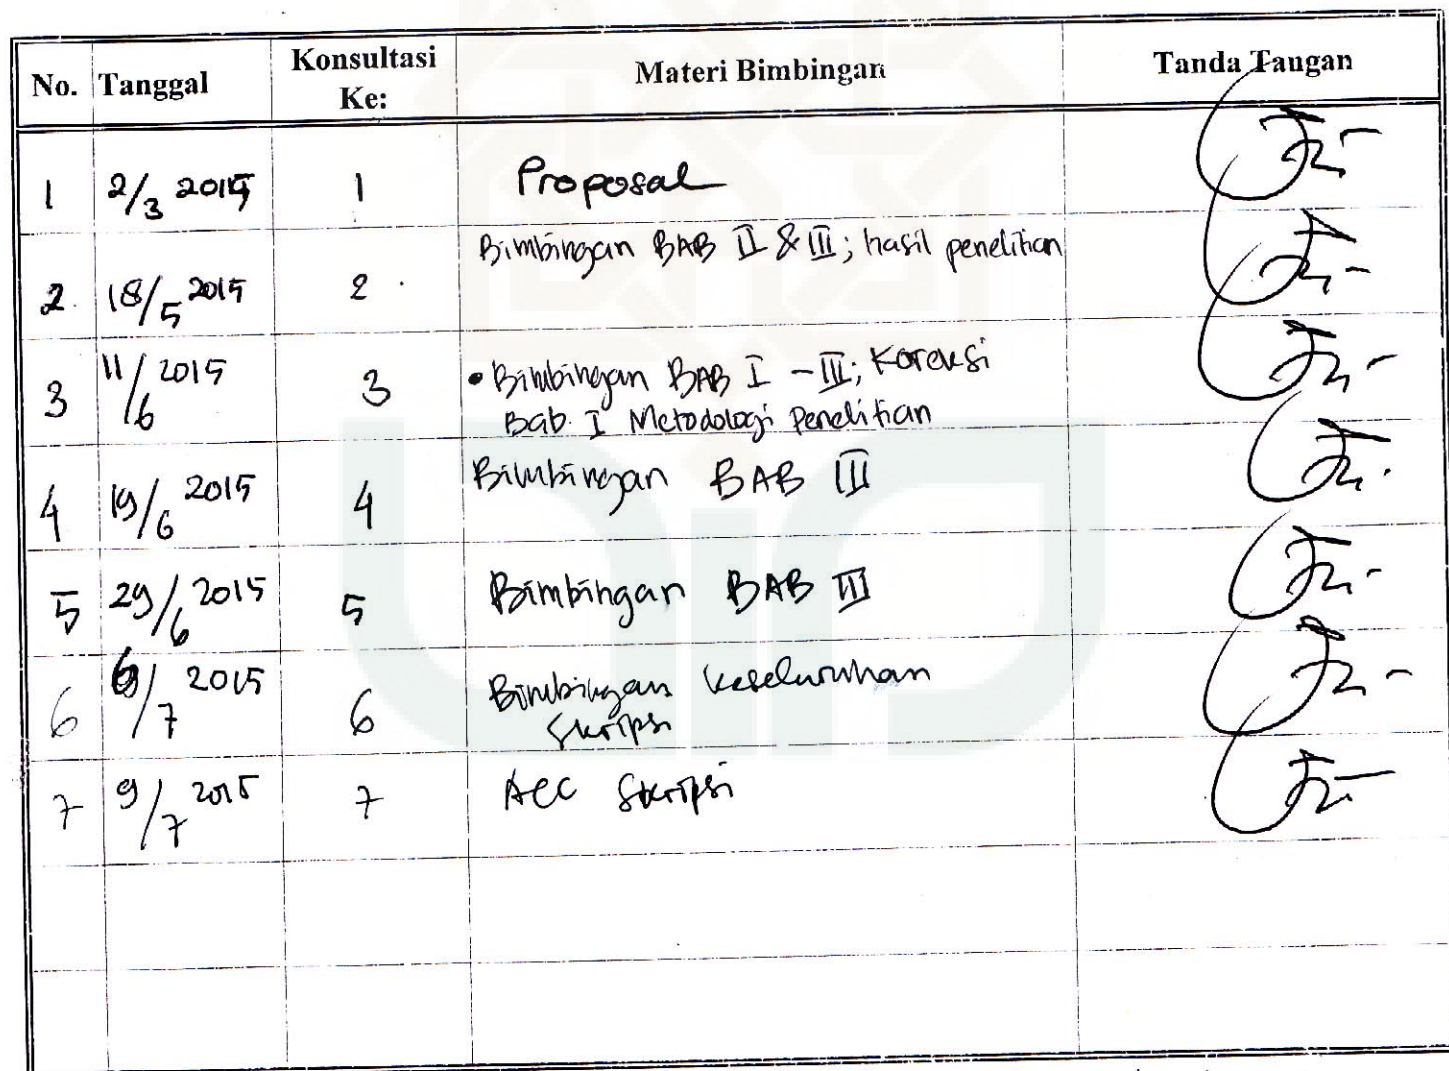 No. Tanggal Konsultasi Ke: Materi Bimbingan Tanda Tangan
1 2/3 2015 1 Proposal
2. 18/5 2015 2 Bimbingan BAB II & III; hasil penelitian
3 11/6 2015 3 • Bimbingan BAB I - III; Koreksi
Bab. I Metodologi Penelitian
4 19/6 2015 4 Bimbingan BAB III
5 29/6 2015 5 Bimbingan BAB III
6 6/7 2015 6 Bimbingan keseluruhan
Skripsi
7 9/7 2015 7 Acc Skripsi